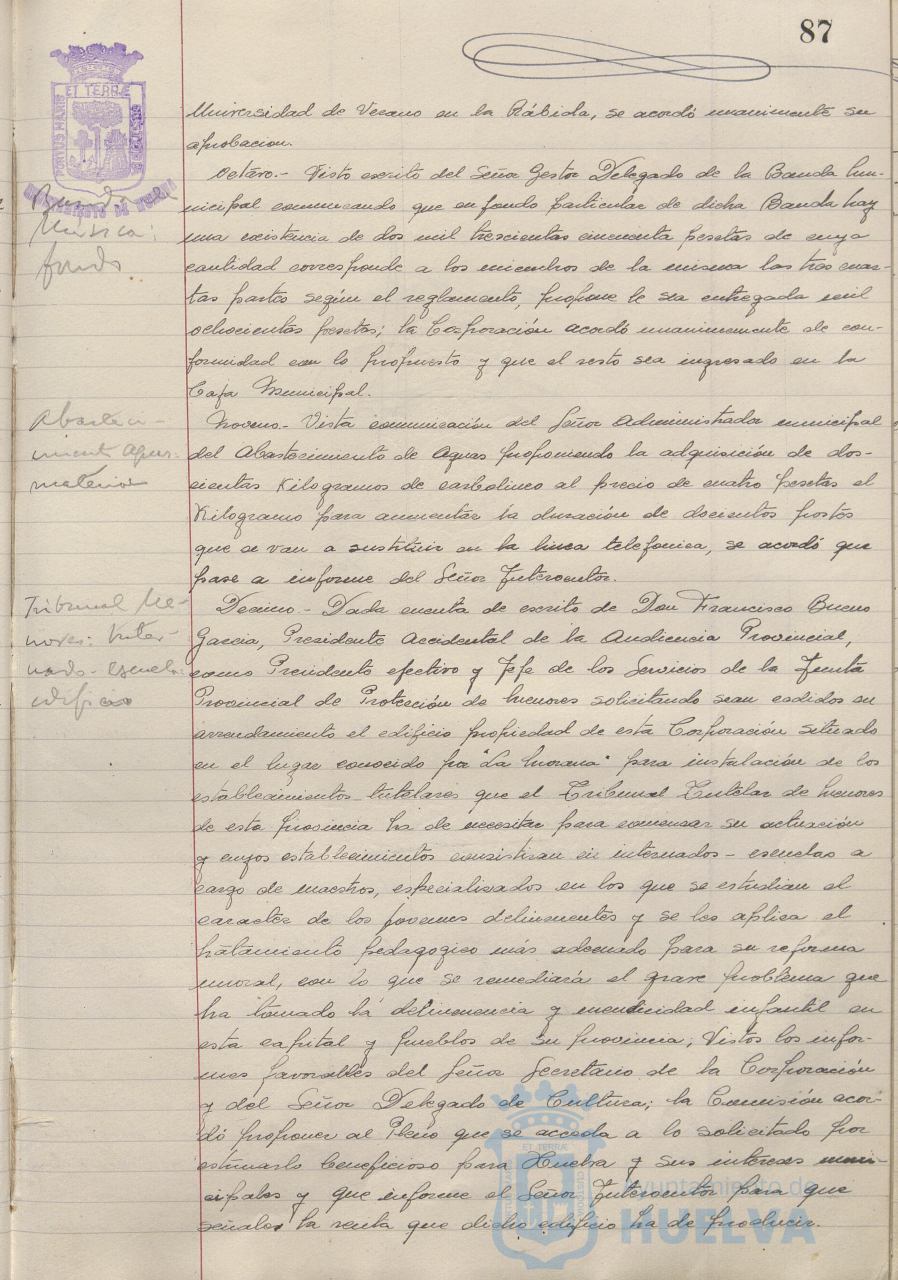 87
PORTUS MARIS
ET TERRÆ
CUSTODIA
AYUNTAMIENTO DE HUELVA
Universidad de Verano en la Rábida, se acordó unanimente su
aprobacion.
Banda
Música:
fondo
Octavo.- Visto escrito del Señor Gestor Delegado de la Banda Mu-
nicipal comunicando que en fondo particular de dicha Banda hay
una existencia de dos mil trescientas cincuenta pesetas de cuya
cantidad corresponde a los miembros de la misma las tres cuar-
tas partes según el reglamento, propone le sea entregada mil
ochocientas pesetas; la Corporación acordó unanimemente de con-
formidad con lo propuesto y que el resto sea ingresado en la
Caja Municipal.
Abasteci-
miento Aguas.
material
Noveno.- Vista comunicación del Señor Administrador municipal
del Abastecimiento de Aguas proponiendo la adquisición de dos-
cientas Kilogramos de carbolineo al precio de cuatro pesetas el
Kilogramo para aumentar la duración de docientos postes
que se van a sustituir en la linea telefonica, se acordó que
pase a informe del Señor Interventor.
Tribunal Me-
nores: Inter-
nado-escuela:
edificio
Decimo.- Dada cuenta de escrito de Don Francisco Bueno
Garcia, Presidente Accidental de la Audiencia Provincial,
como Presidente efectivo y Jefe de los Servicios de la Junta
Provincial de Protección de Menores solicitando sean cedidos en
arrendamiento el edificio propiedad de esta Corporación situado
en el lugar conocido por "La Morana" para instalación de los
establecimientos tutelares que el Tribunal Tutelar de Menores
de esta provincia ha de necesitar para comenzar su actuación
y cuyos establecimientos consistiran en internados-escuelas a
cargo de maestros, especialisados en los que se estudian el
caracter de los jovenes delincuentes y se les aplica el
tratamiento pedagogico más adecuado para su reforma
moral, con lo que se remediará el grave problema que
ha tomado la delincuencia y mendicidad infantil en
esta capital y pueblos de su provincia; Vistos los infor-
mes favorables del Señor Secretario de la Corporación
y del Señor Delegado de Cultura; la Comisión acor-
dó proponer al Pleno que se acceda a lo solicitado por
estimarlo beneficioso para Huelva y sus intereses muni-
cipales y que informe el Señor Interventor para que
señale la renta que dicho edificio ha de producir.
Ayuntamiento de
HUELVA